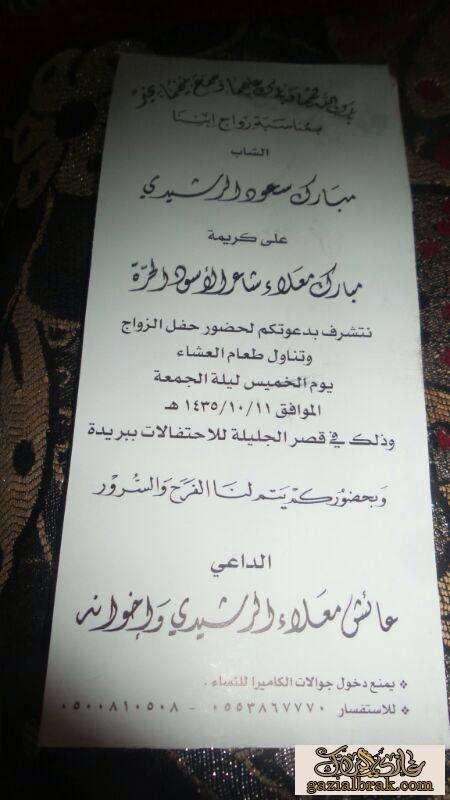 بمناسبة زواج إبننا
الشاب
مبارك سعود الرشيدي
على كريمة
مبارك معلاء شاعر الأسود الحرّة
نتشرف بدعوتكم لحضور حفل الزواج
وتناول طعام العشاء
يوم الخميس ليلة الجمعة
الموافق ١٤٣٥/١٠/١١ هـ
وذلك في قصر الجليلة للاحتفالات ببريدة
وبحضوركم يتم لنا الفرح والسرور
الداعي
عائش معلاء الرشيدي وإخوانه
يمنع دخول جوالات الكاميرا للنساء .
للاستفسار ٠٥٥٣٨٦٧٧٧٠ - ٠٥٠٠٨١٠٥٠٨
gazialbrak.com